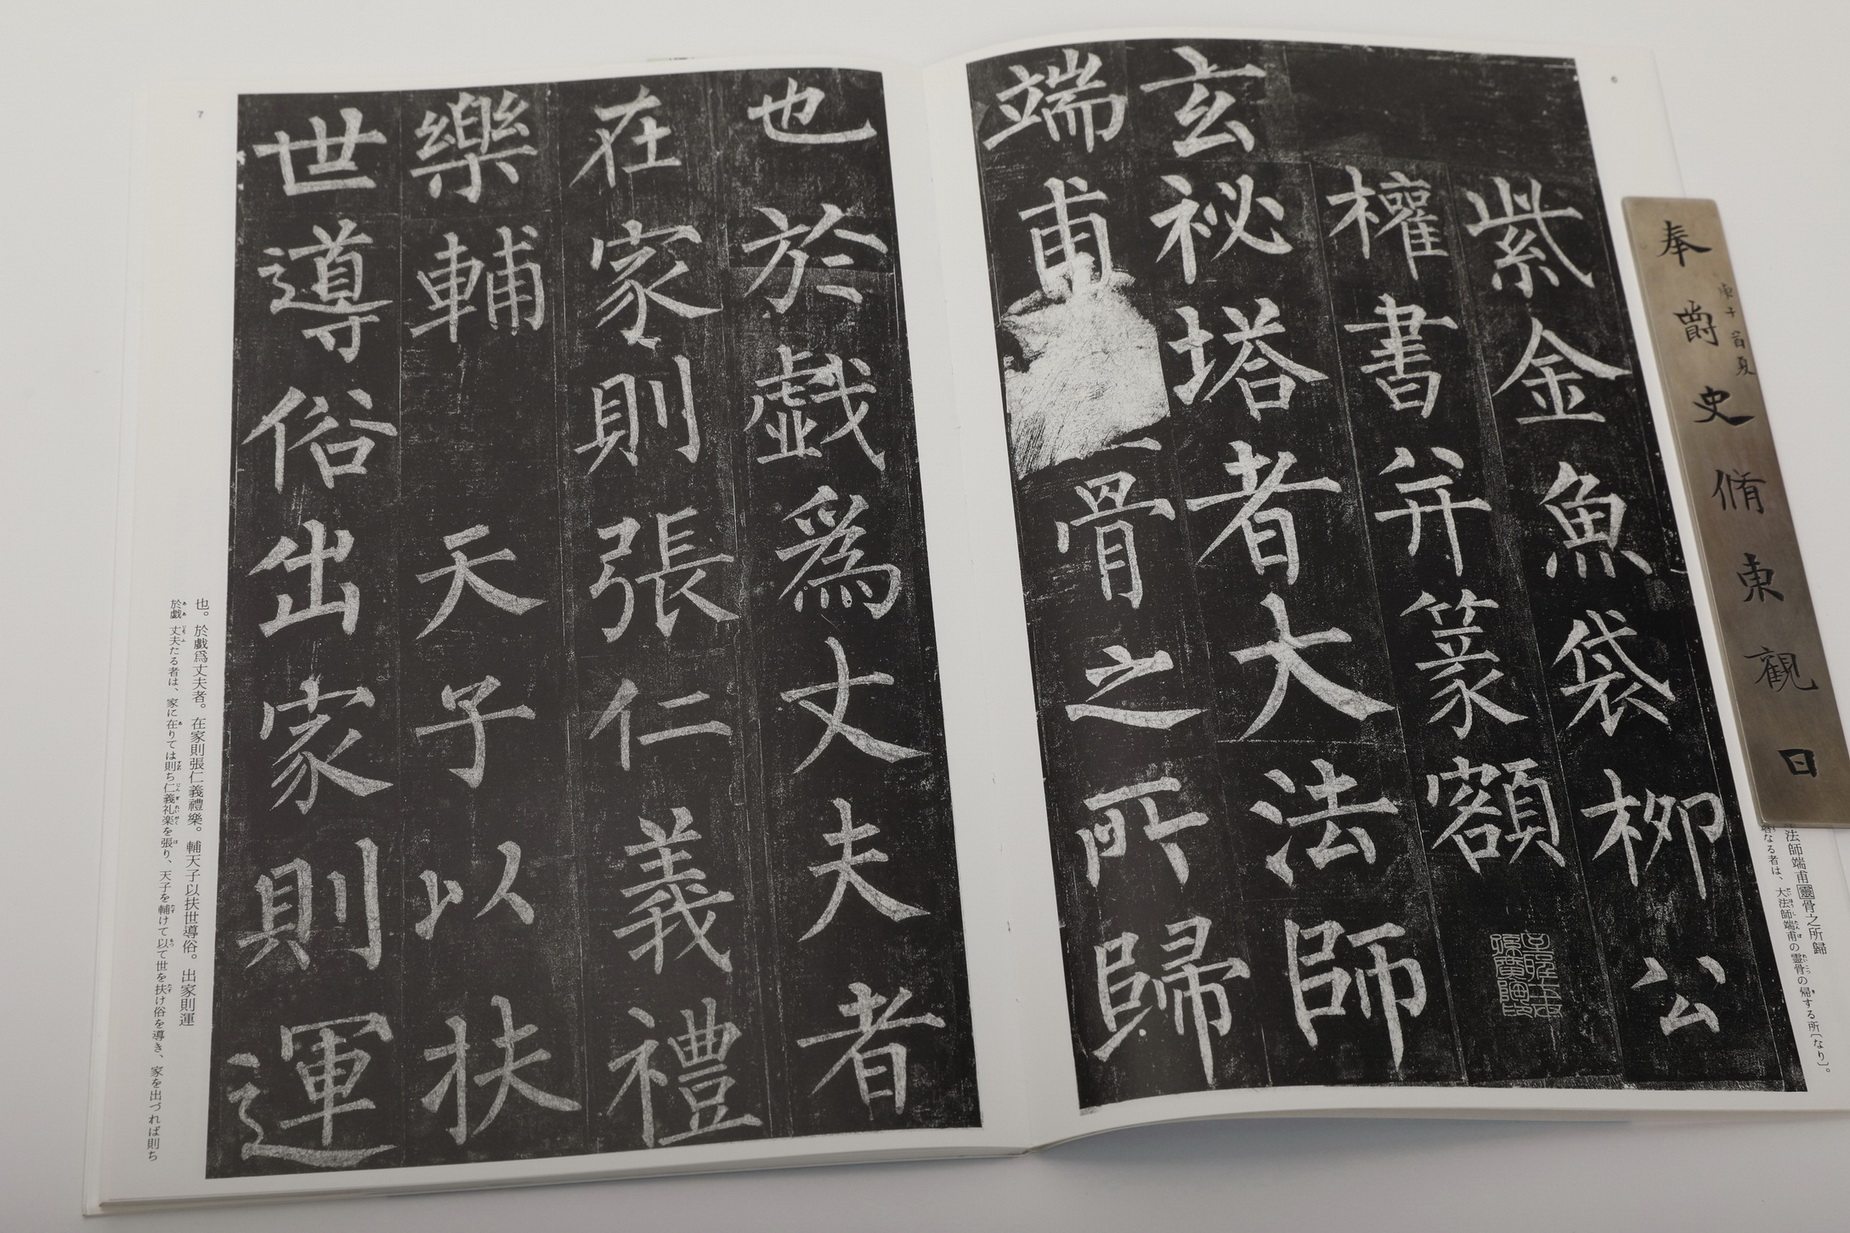 6
紫金魚袋柳公
權書并篆額
玄秘塔者大法師
端甫骨之所歸
法師端甫靈骨之所歸
なる者は、大法師端甫の霊骨の帰する所〔なり〕。
7
也於戲為丈夫者
在家則張仁義禮
樂輔天子以扶
世導俗出家則運
也。於戲爲丈夫者。在家則張仁義禮樂。輔天子以扶世導俗。出家則運
於戯丈夫たる者は、家に在りては則ち仁義礼楽を張り、天子を輔けて以て世を扶け俗を導き、家を出づれば則ち
奉爵史脩東觀日
庚子首夏